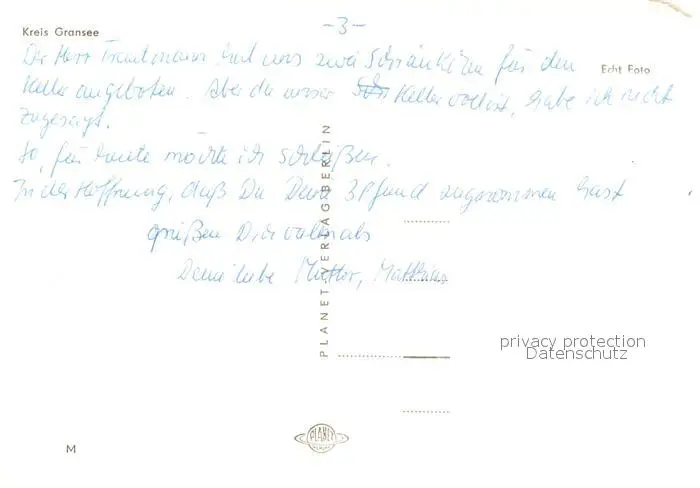 Kreis Gransee
-3-
Der Herr Trautmann hat uns zwei Schränkchen für den
Echt Foto
Keller angeboten. Aber da unser Keller voll ist, habe ich nicht
zugesagt.
So, für heute möchte ich schließen.
In der Hoffnung, daß Du Deine 3 Pfund zugenommen hast
grüßen Dich vielmals
Deine liebe Mutter, Matthias
PLANET-VERLAG BERLIN
privacy protection
Datenschutz
PLANET
M